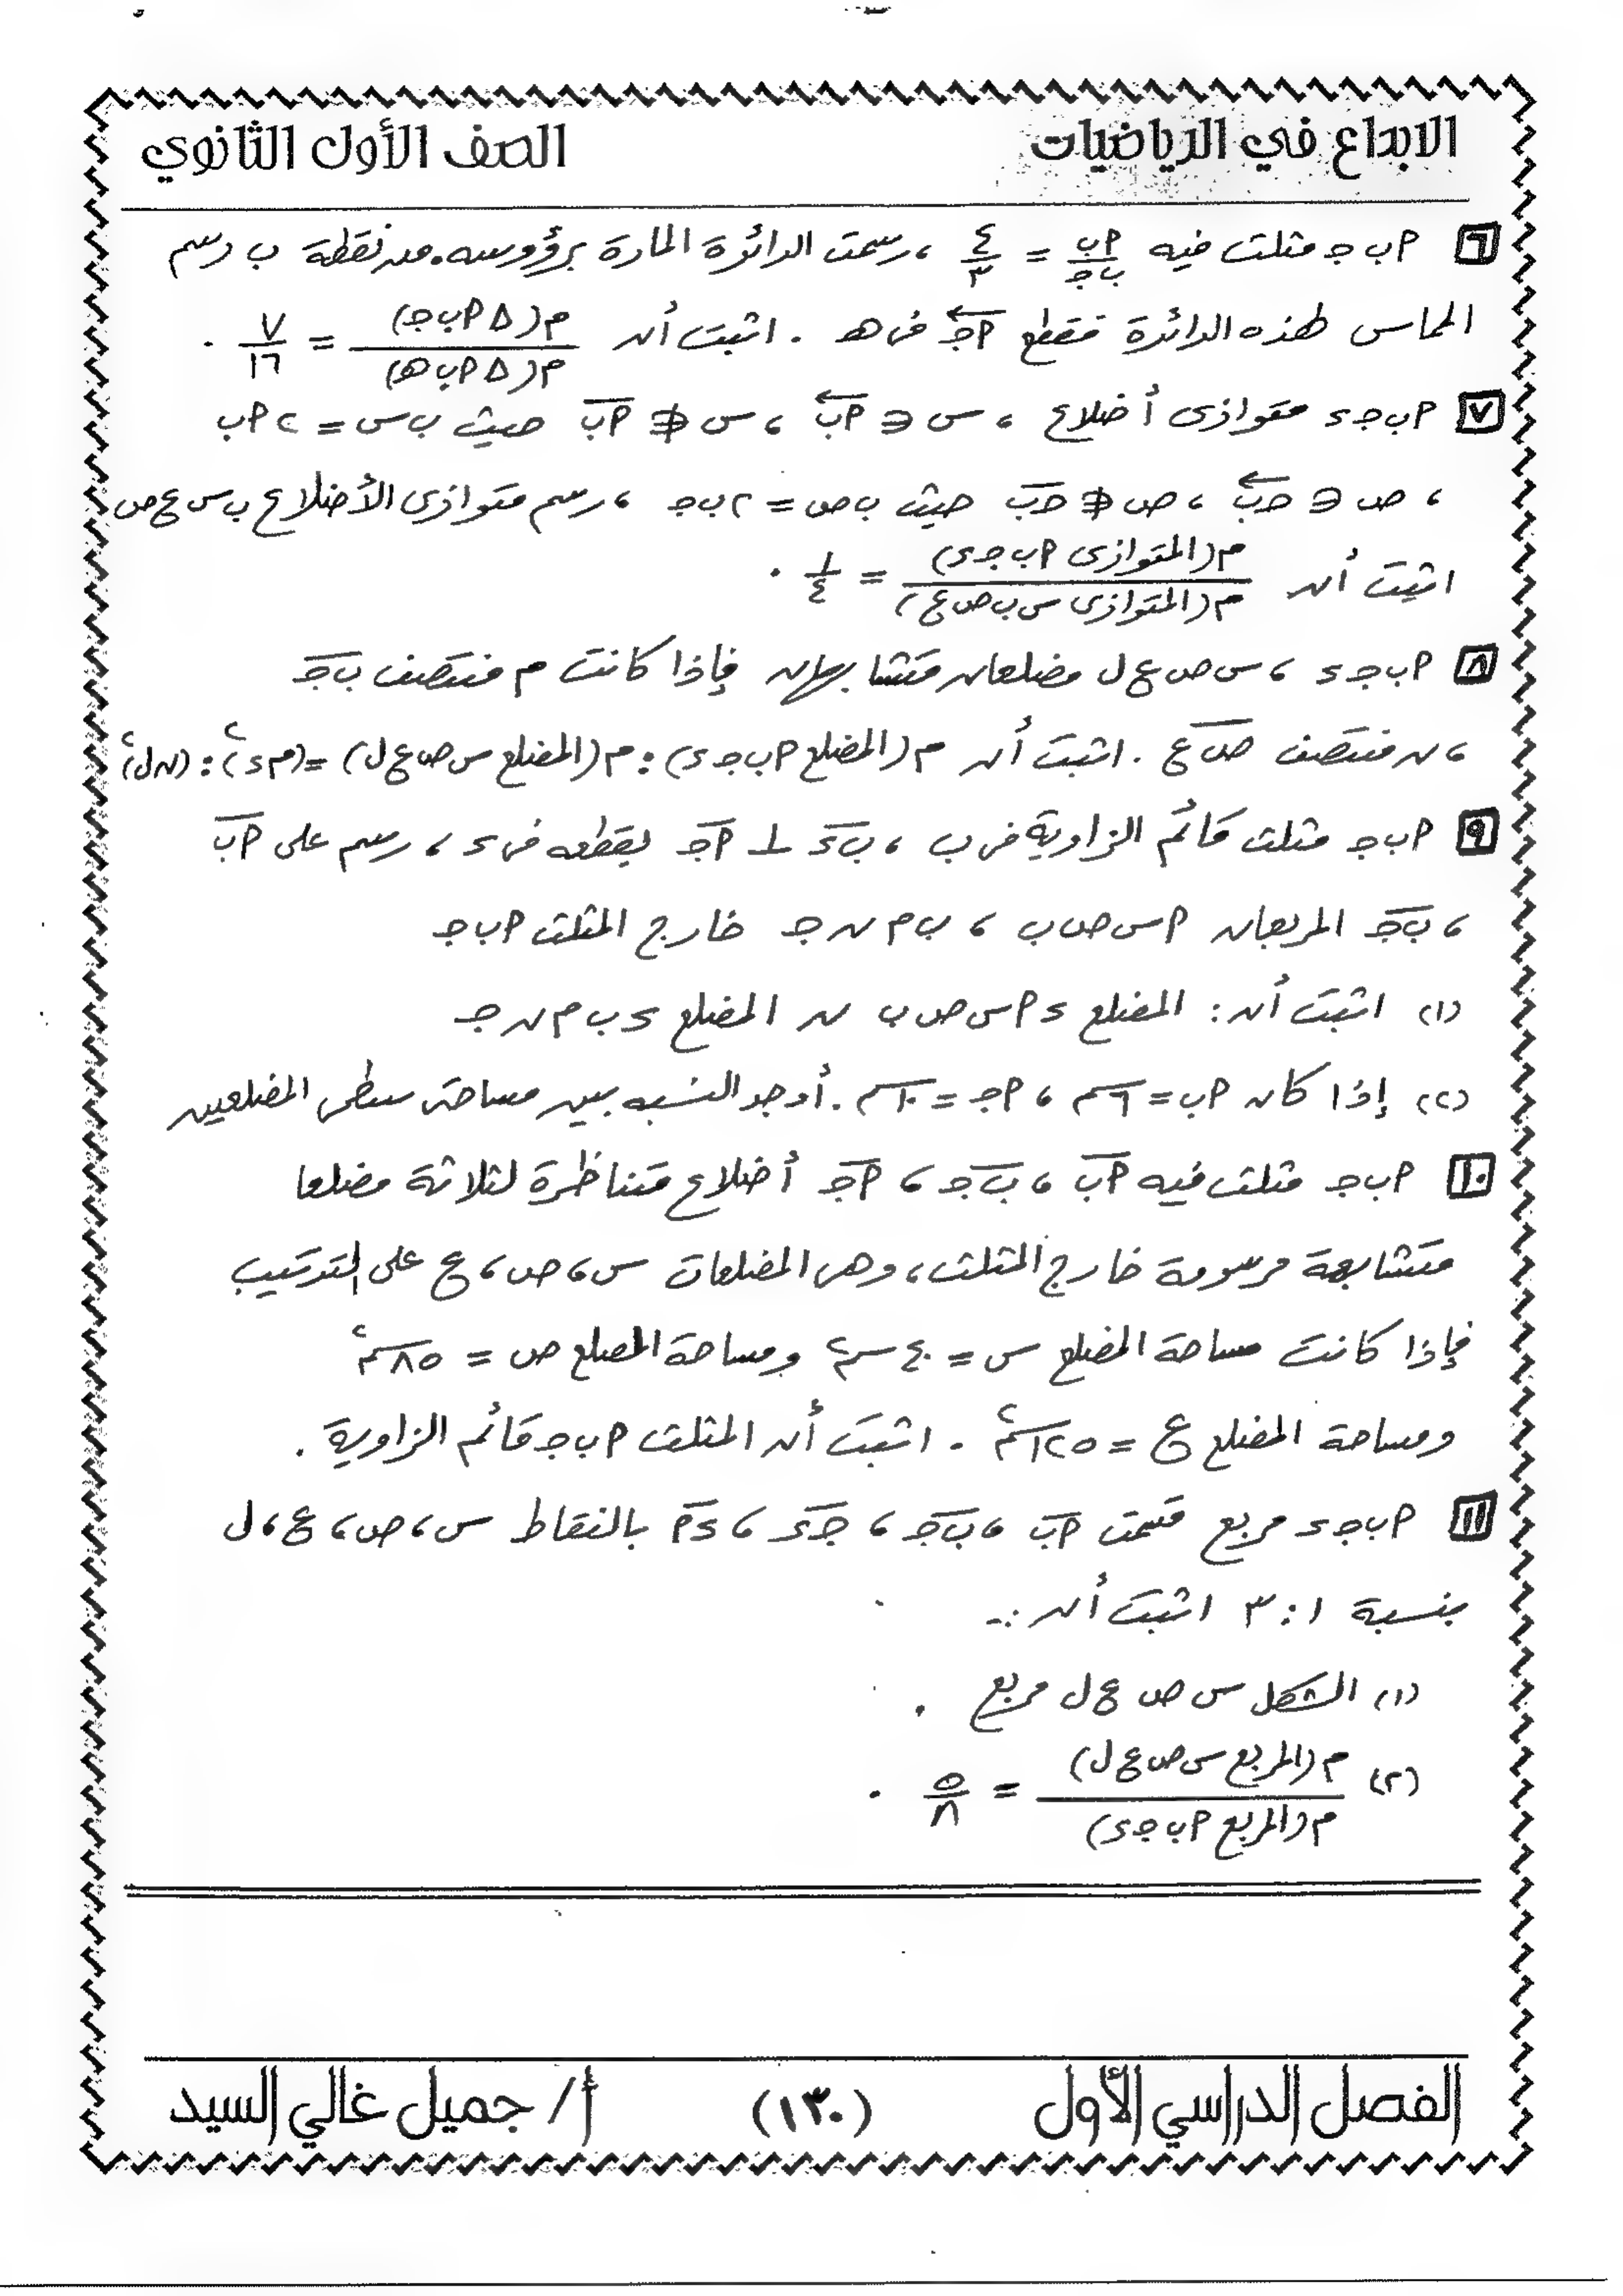 الابداع في الرياضيات
الصف الأول الثانوي
٦ ا ب جـ مثلث فيه اب/ب جـ = ٤/٣ ، رسمت الدائرة المارة برؤوسه . من نقطة ب رسم
المماس لهذه الدائرة فقطع اجـ فى هـ . اثبت أن م(△ اب جـ)/م(△ اب هـ) = ٧/١٦ .
٧ اب جـ د متوازى أضلاع ، س ∈ اب ، س ∉ اب حيث ب س = ٢ اب
، ص ∈ جـ ب ، ص ∉ جـ ب حيث ب ص = ٢ ب جـ ، رسم متوازى الأضلاع ب س ع ص
اثبت أن م(المتوازى اب جـ د)/م(المتوازى س ب ص ع) = ١/٤ .
٨ اب جـ د ، س ص ع ل مضلعان متشابهان فإذا كانت م منتصف ب جـ
، ن منتصف ص ع . اثبت أن م(المضلع اب جـ د) : م(المضلع س ص ع ل) = (م د)٢ : (ن ل)٢
٩ اب جـ مثلث قائم الزاوية فى ب ، ب د ⊥ اجـ يقطعه فى د ، رسم على اب
، ب جـ المربعان اس ص ب ، ب م ن جـ خارج المثلث اب جـ
(١) اثبت أن : المضلع د اس ص ب ~ المضلع د ب م ن جـ
(٢) إذا كان اب = ٦ سم ، اجـ = ١٠ سم . أوجد النسبه بين مساحتى سطحى المضلعين
١٠ اب جـ مثلث فيه اب ، ب جـ ، اجـ أضلاع متناظرة لثلاثة مضلعا
متشابهة مرسومة خارج المثلث ، وهى المضلعات س ، ص ، ع على الترتيب
فإذا كانت مساحة المضلع س = ٤٠ سم٢ ومساحة المضلع ص = ٨٥ سم٢
ومساحة المضلع ع = ١٢٥ سم٢ . اثبت أن المثلث اب جـ قائم الزاوية .
١١ اب جـ د مربع قسمت اب ، ب جـ ، جـ د ، د ا بالنقاط س ، ص ، ع ، ل
بنسبة ١ : ٣ اثبت أن :-
(١) الشكل س ص ع ل مربع .
(٢) م(المربع س ص ع ل)/م(المربع اب جـ د) = ٥/٨ .
الفصل الدراسي الأول
(١٣٠)
أ/ جميل غالي السيد